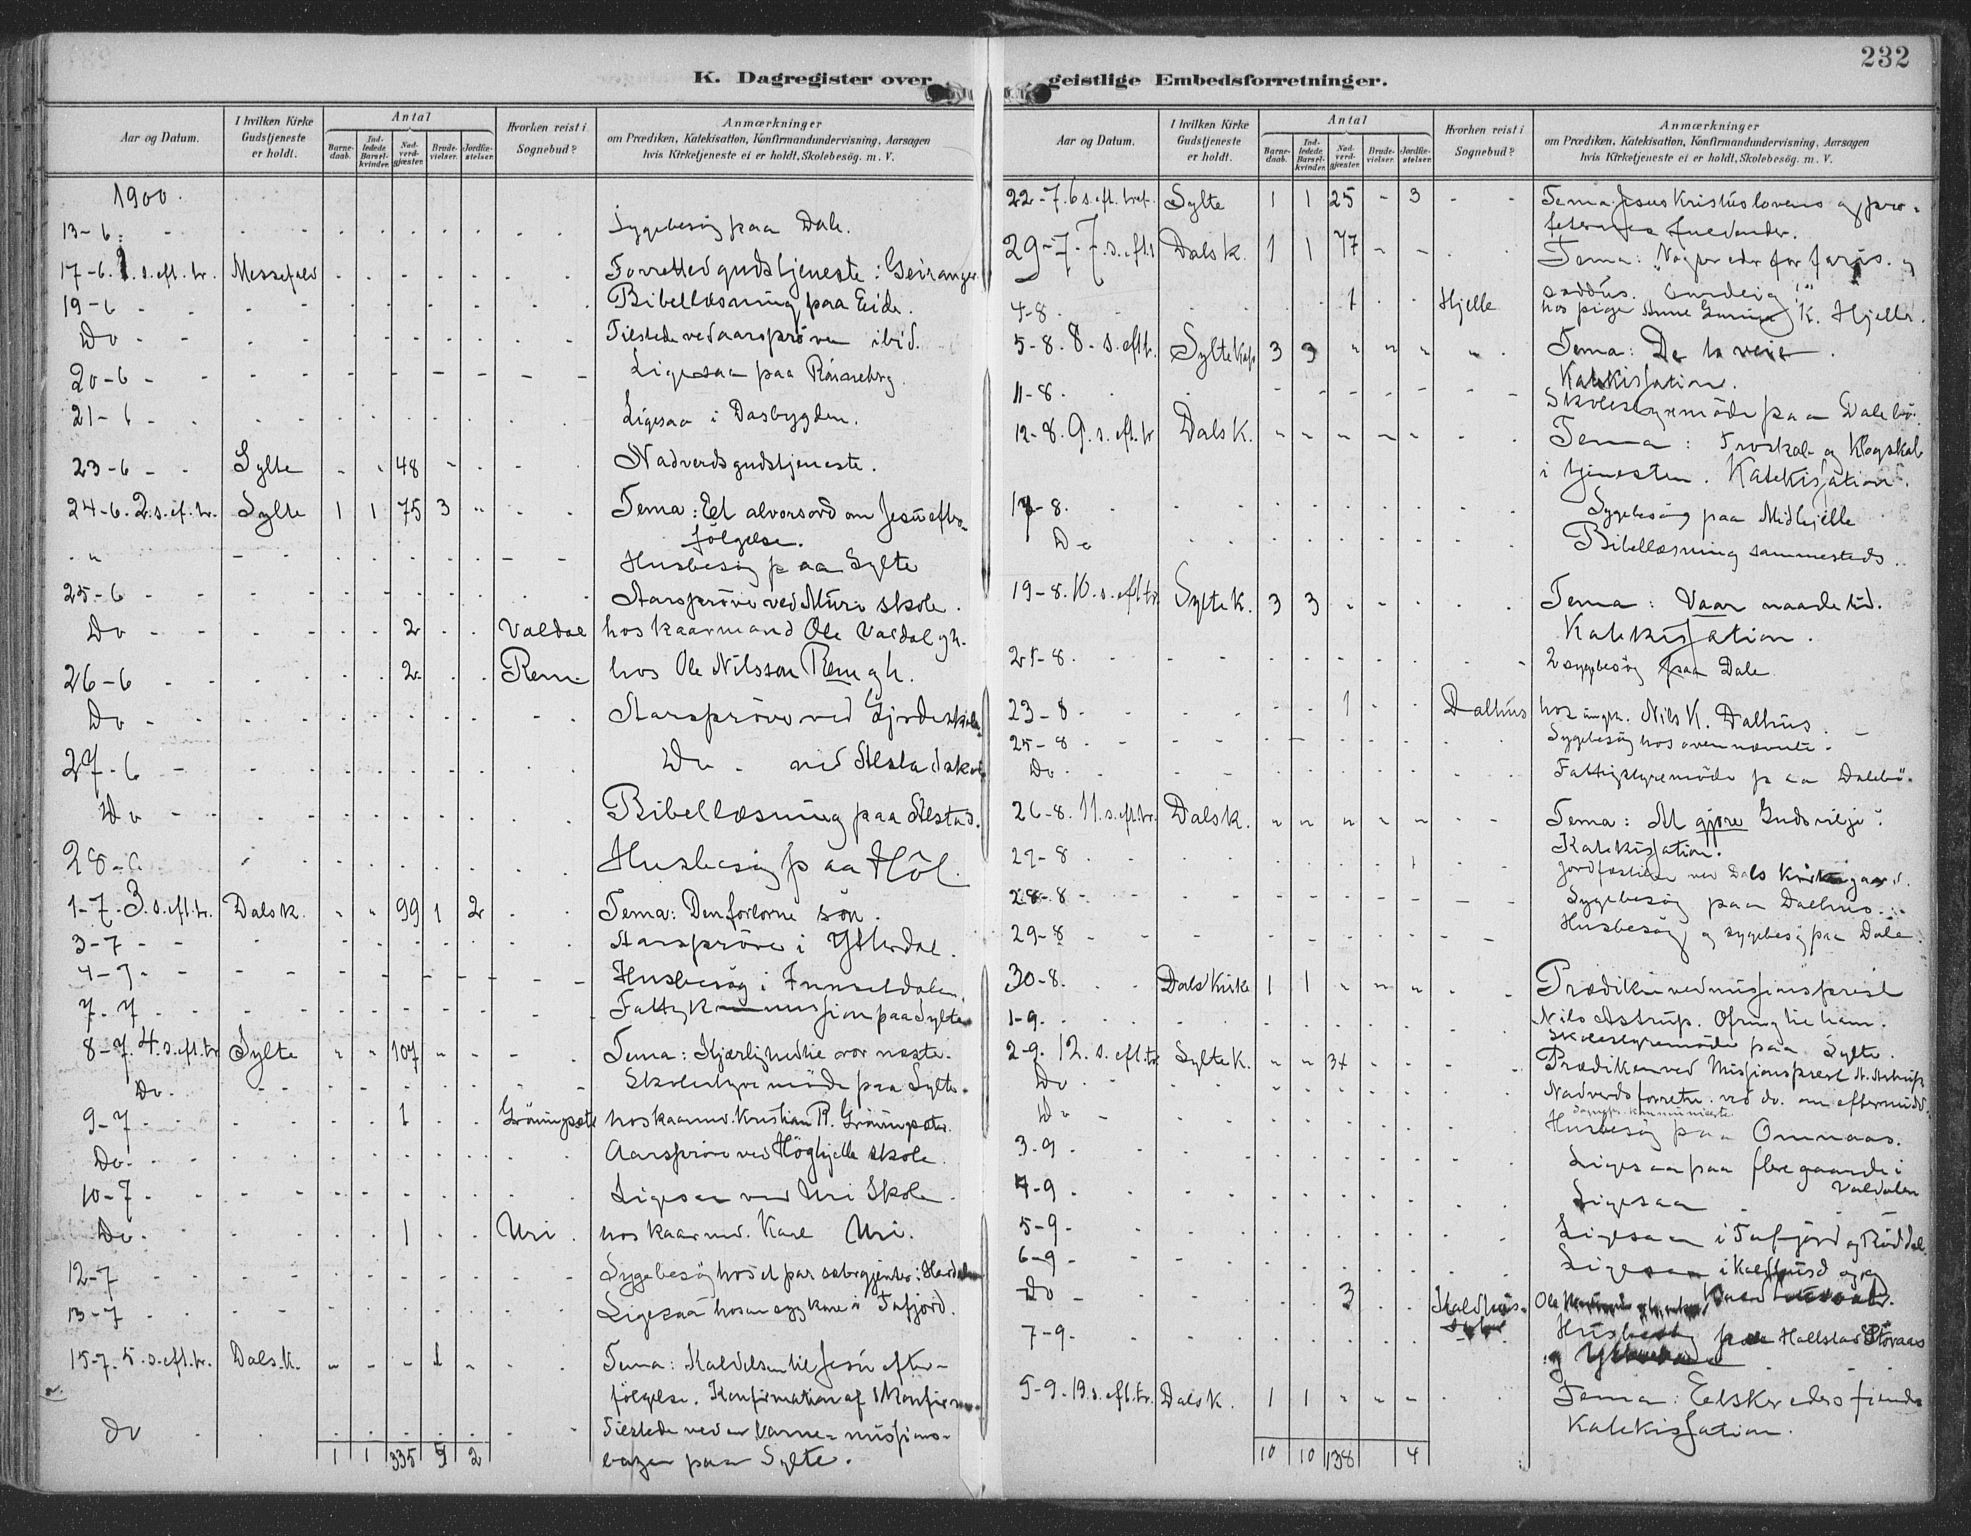 232
K. Dagregister over geistlige Embedsforretninger.
Aar og Datum.
I hvilken Kirke Gudstjeneste er holdt.
Antal
Barnedaab.
Indledede Barselkvinder.
Nadverdgjæster.
Brudevielser.
Jordfæstelser.
Hvorhen reist i Sognebud?
Anmærkninger
om Prædiken, Katekisation, Konfirmandundervisning, Aarsagen
hvis Kirketjeneste ei er holdt, Skolebesøg. m. V.
1900.
13-6. Sygebesög paa Dale.
17-6. 1. s. eft. tr. Messefald Forretted gudstjeneste i Geiranger
19-6 Bibellæsning paa Eide.
Do Tilstede ved aarspröven ibid.
20-6 Ligesaa paa Rönneberg.
21-6 Ligesaa i Dasbygden.
23-6 Sylte 48 Nadverdsgudstjeneste.
24-6. 2. s. ef. tr. Sylte 1 1 75 3 Tema: Et alvorsord om Jesu efter-
fölgelse.
" Husbesög paa Sylte
25-6 Aarspröve ved Muri skole.
Do 2 Valdal hos kaarmand Ole Valdal gh.
26-6 2 Rem hos Ole Nilsson Rem gh.
Do Aarspröve ved Gjerde skole
27-6 Do. ved Alstad skole
Do Bibellæsning paa Alstad.
28-6 Husbesög paa Höl.
1-7. 3. s. eft. tr. Dals k. " " 99 1 2 Tema: Den forlorne sön.
3-7 Aarspröve i Ytterdal.
4-7 Husbesög i
7-7 Fattigkommission paa Sylte
8-7. 4. s. eft. tr Sylte " " 107 Tema: Kjærlighed til vor næste.
Do. Skolestyremöde paa Sylte.
9-7 1 Gröningsæter hos kaarmd. Kristian R. Gröningsæter.
Do. Aarspröve ved Höghjelle skole.
10-7 Ligesaa ved Uri Skole.
Do. 1 Uri hos kaarmd. Karl Uri.
12-7 Sygebesög hos et par sæterjenter i Herdalen
13-7 Ligesaa hos en syg kone i Tafjord.
15-7. 5. s. eft. tr. Dals k. 1 Tema: Kaldelsen til Jesu efter-
fölgelse. Konfirmation af 1 Konfirm
Do Tilstede ved en misjons-
bazar paa Sylte.
1 1 335 5 2
Aar og Datum.
I hvilken Kirke Gudstjeneste er holdt.
Antal
Barnedaab.
Indledede Barselkvinder.
Nadverdgjæster.
Brudevielser.
Jordfæstelser.
Hvorhen reist i Sognebud?
Anmærkninger
om Prædiken, Katekisation, Konfirmandundervisning, Aarsagen
hvis Kirketjeneste ei er holdt, Skolebesøg. m. V.
22-7. 6 s. eft. tref. Sylte 1 1 25 - 3 Tema: Jesus Kristus lovens og pro-
feternes fuldender.
29-7. 7. s. eft. Dals k. 1 1 77 Tema: "Vogter eder for faris. og
saddus. surdeig!"
4-8. 1 Hjelle hos pige K. Hjelle.
5-8. 8. s. eft. tr. Sylte 3 3 Tema: De to veie.
Katekisation.
11-8. Skolestyremöde paa Dalebö.
12-8. 9. s. eft. tr Dals k. Tema: Troskab og Klogskab
i tjenesten. Katekisation.
-8. Sygebesög paa Midhjelle
Do Bibellæsning sammesteds.
19-8. 10. s. eft. tr. Sylte k. 3 3 Tema: Vaar naadetid.
Katekisation.
-8. 2 sygebesög paa Dale
23-8 1 Dalhus hos ungk. Nils K. Dalhus.
25-8 Sygebesög hos ovennævnte.
Do. Fattigstyremöde paa Dalebö.
26-8. 11. s. eft. tr. Dals k. Tema: At gjøre Guds vilje.
Katekisation.
27-8 1 Jordfæstelse ved Dals Kirkegaard.
28-8 Sygebesög paa Dalhus.
29-8 Husbesög og sygebesög paa Dale
30-8. Dals Kirke 1 1 Prædiken ved misjonsprest
Nils Astrup. Ofring til ham.
1-9. Skolestyremöde paa Sylte.
2-9. 12. s. eft. tr Sylte k. 34 Prædiken ved Misjonsprest N. Astrup
Do Nadverdsforretn. ved do. om eftermidd.
Do Husbesög paa Omnaas.
3-9 Ligesaa paa flere gaarde i
Valdalen
4-9 Ligesaa
5-9 Ligesaa i Tafjord og Röddal
6-9 Ligesaa i Kaldhusd
Do 3 Kaldhus- Ole
7-9 Husbesög paa Hallstad Storaas
og
9-9. 13. s. eft. tr. Dals k. 1 1 Tema: Elsker eders fiender
Katekisation.
10 10 138 4